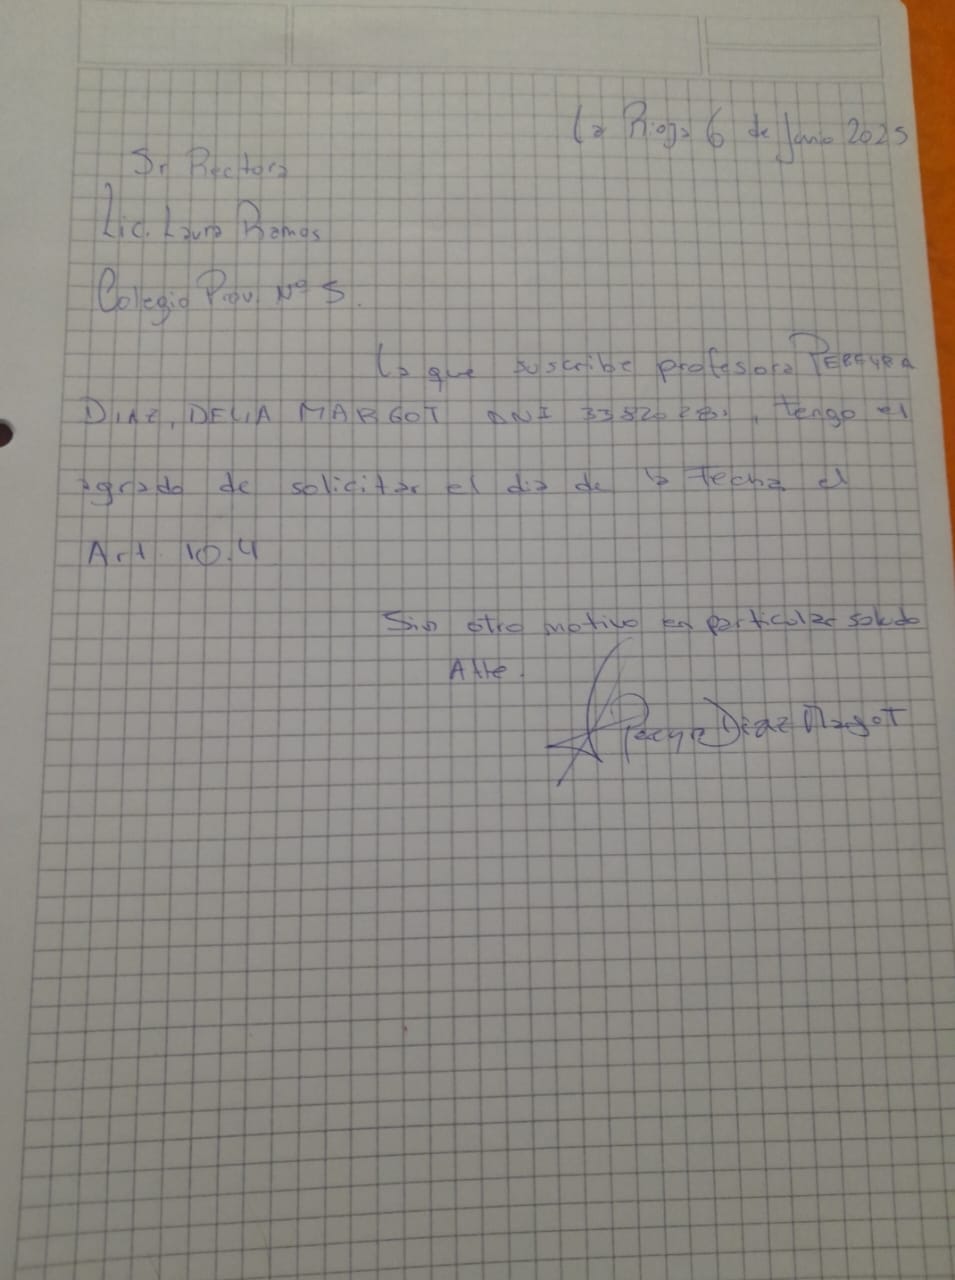 La Rioja 6 de Junio 2025
Sr Rectora
Lic. Laura Ramos
Colegio Prov. Nº 5.
La que suscribe profesora PEREYRA
DIAZ, DELIA MARGOT DNI , tengo el
agrado de solicitar el dia de la fecha el
Art. 10.4
Sin otro motivo en particular saludo
Atte.
Pereyra Diaz Margot